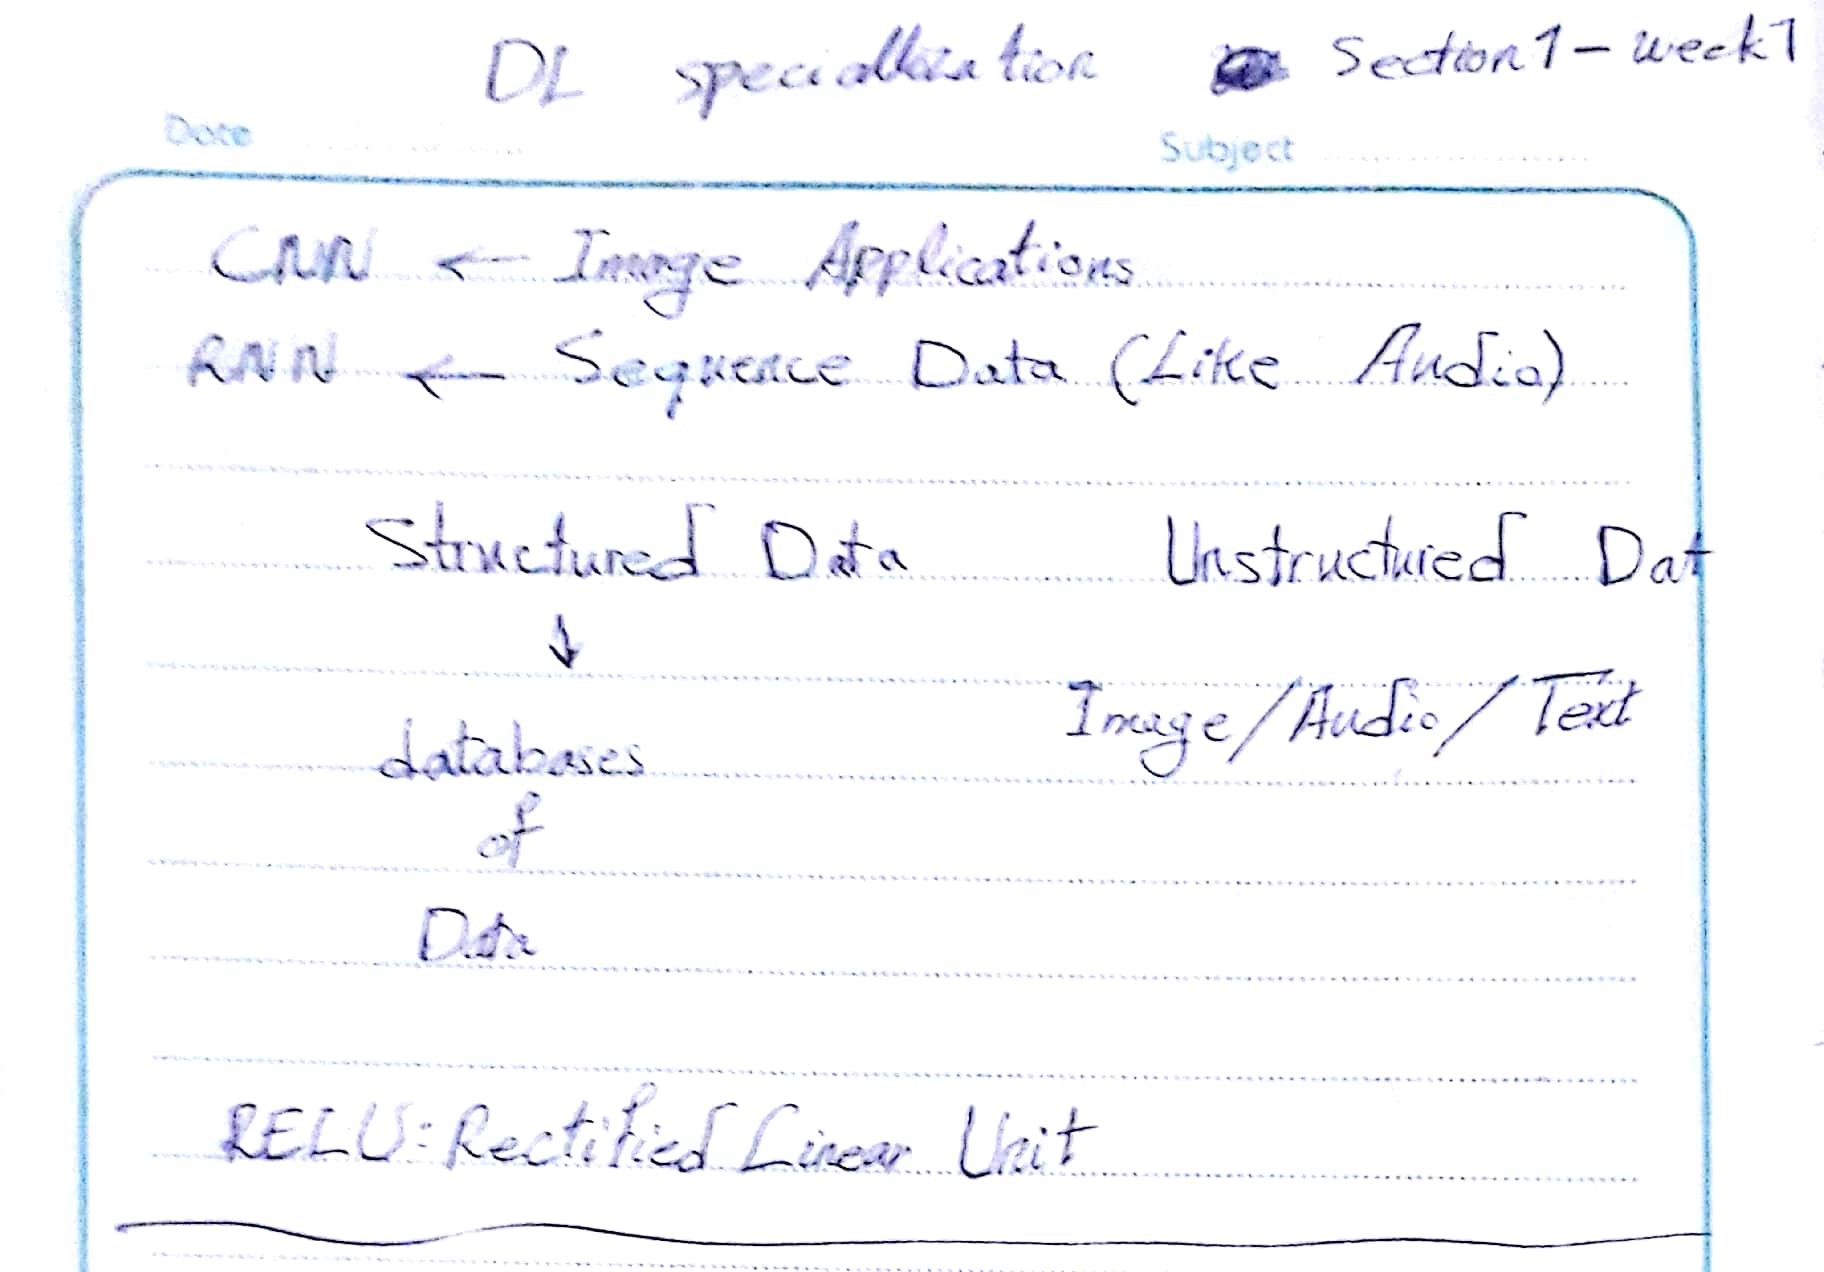 DL speciallization Section1 - week1
Date Subject
CNN ← Image Applications
RNN ← Sequence Data (Like Audio)
Structured Data Unstructured Dat
↓
Image/Audio/Text
databases
of
Data
RELU: Rectified Linear Unit